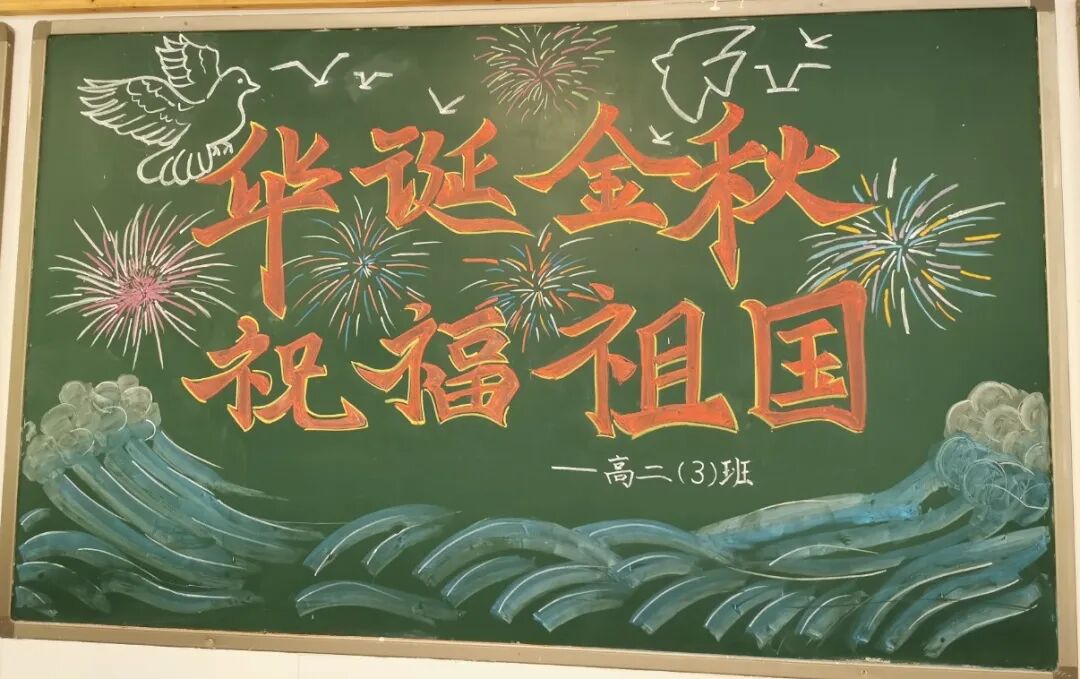 华诞金秋
祝福祖国
—高二(3)班